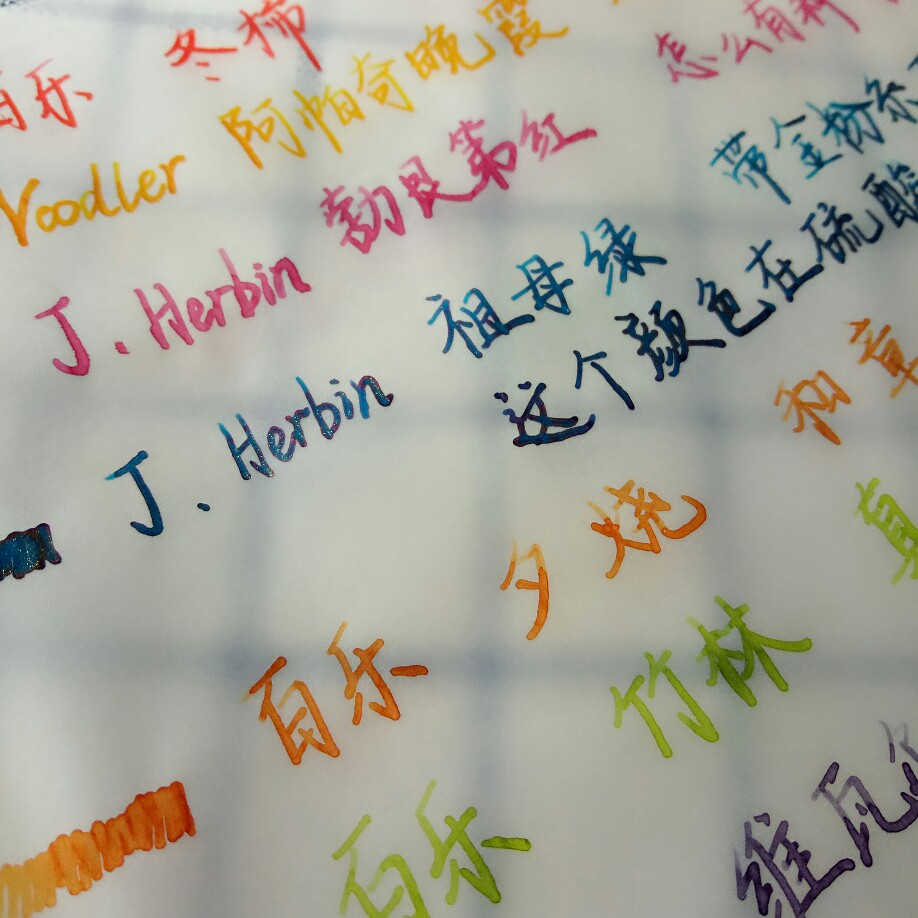 百乐 冬柿 怎么有种
Noodler 阿帕奇晚霞
J. Herbin 勃艮第红 带金粉系
J. Herbin 祖母绿 这个颜色在硫酸
百乐 夕烧 和章
百乐 竹林 真
维瓦